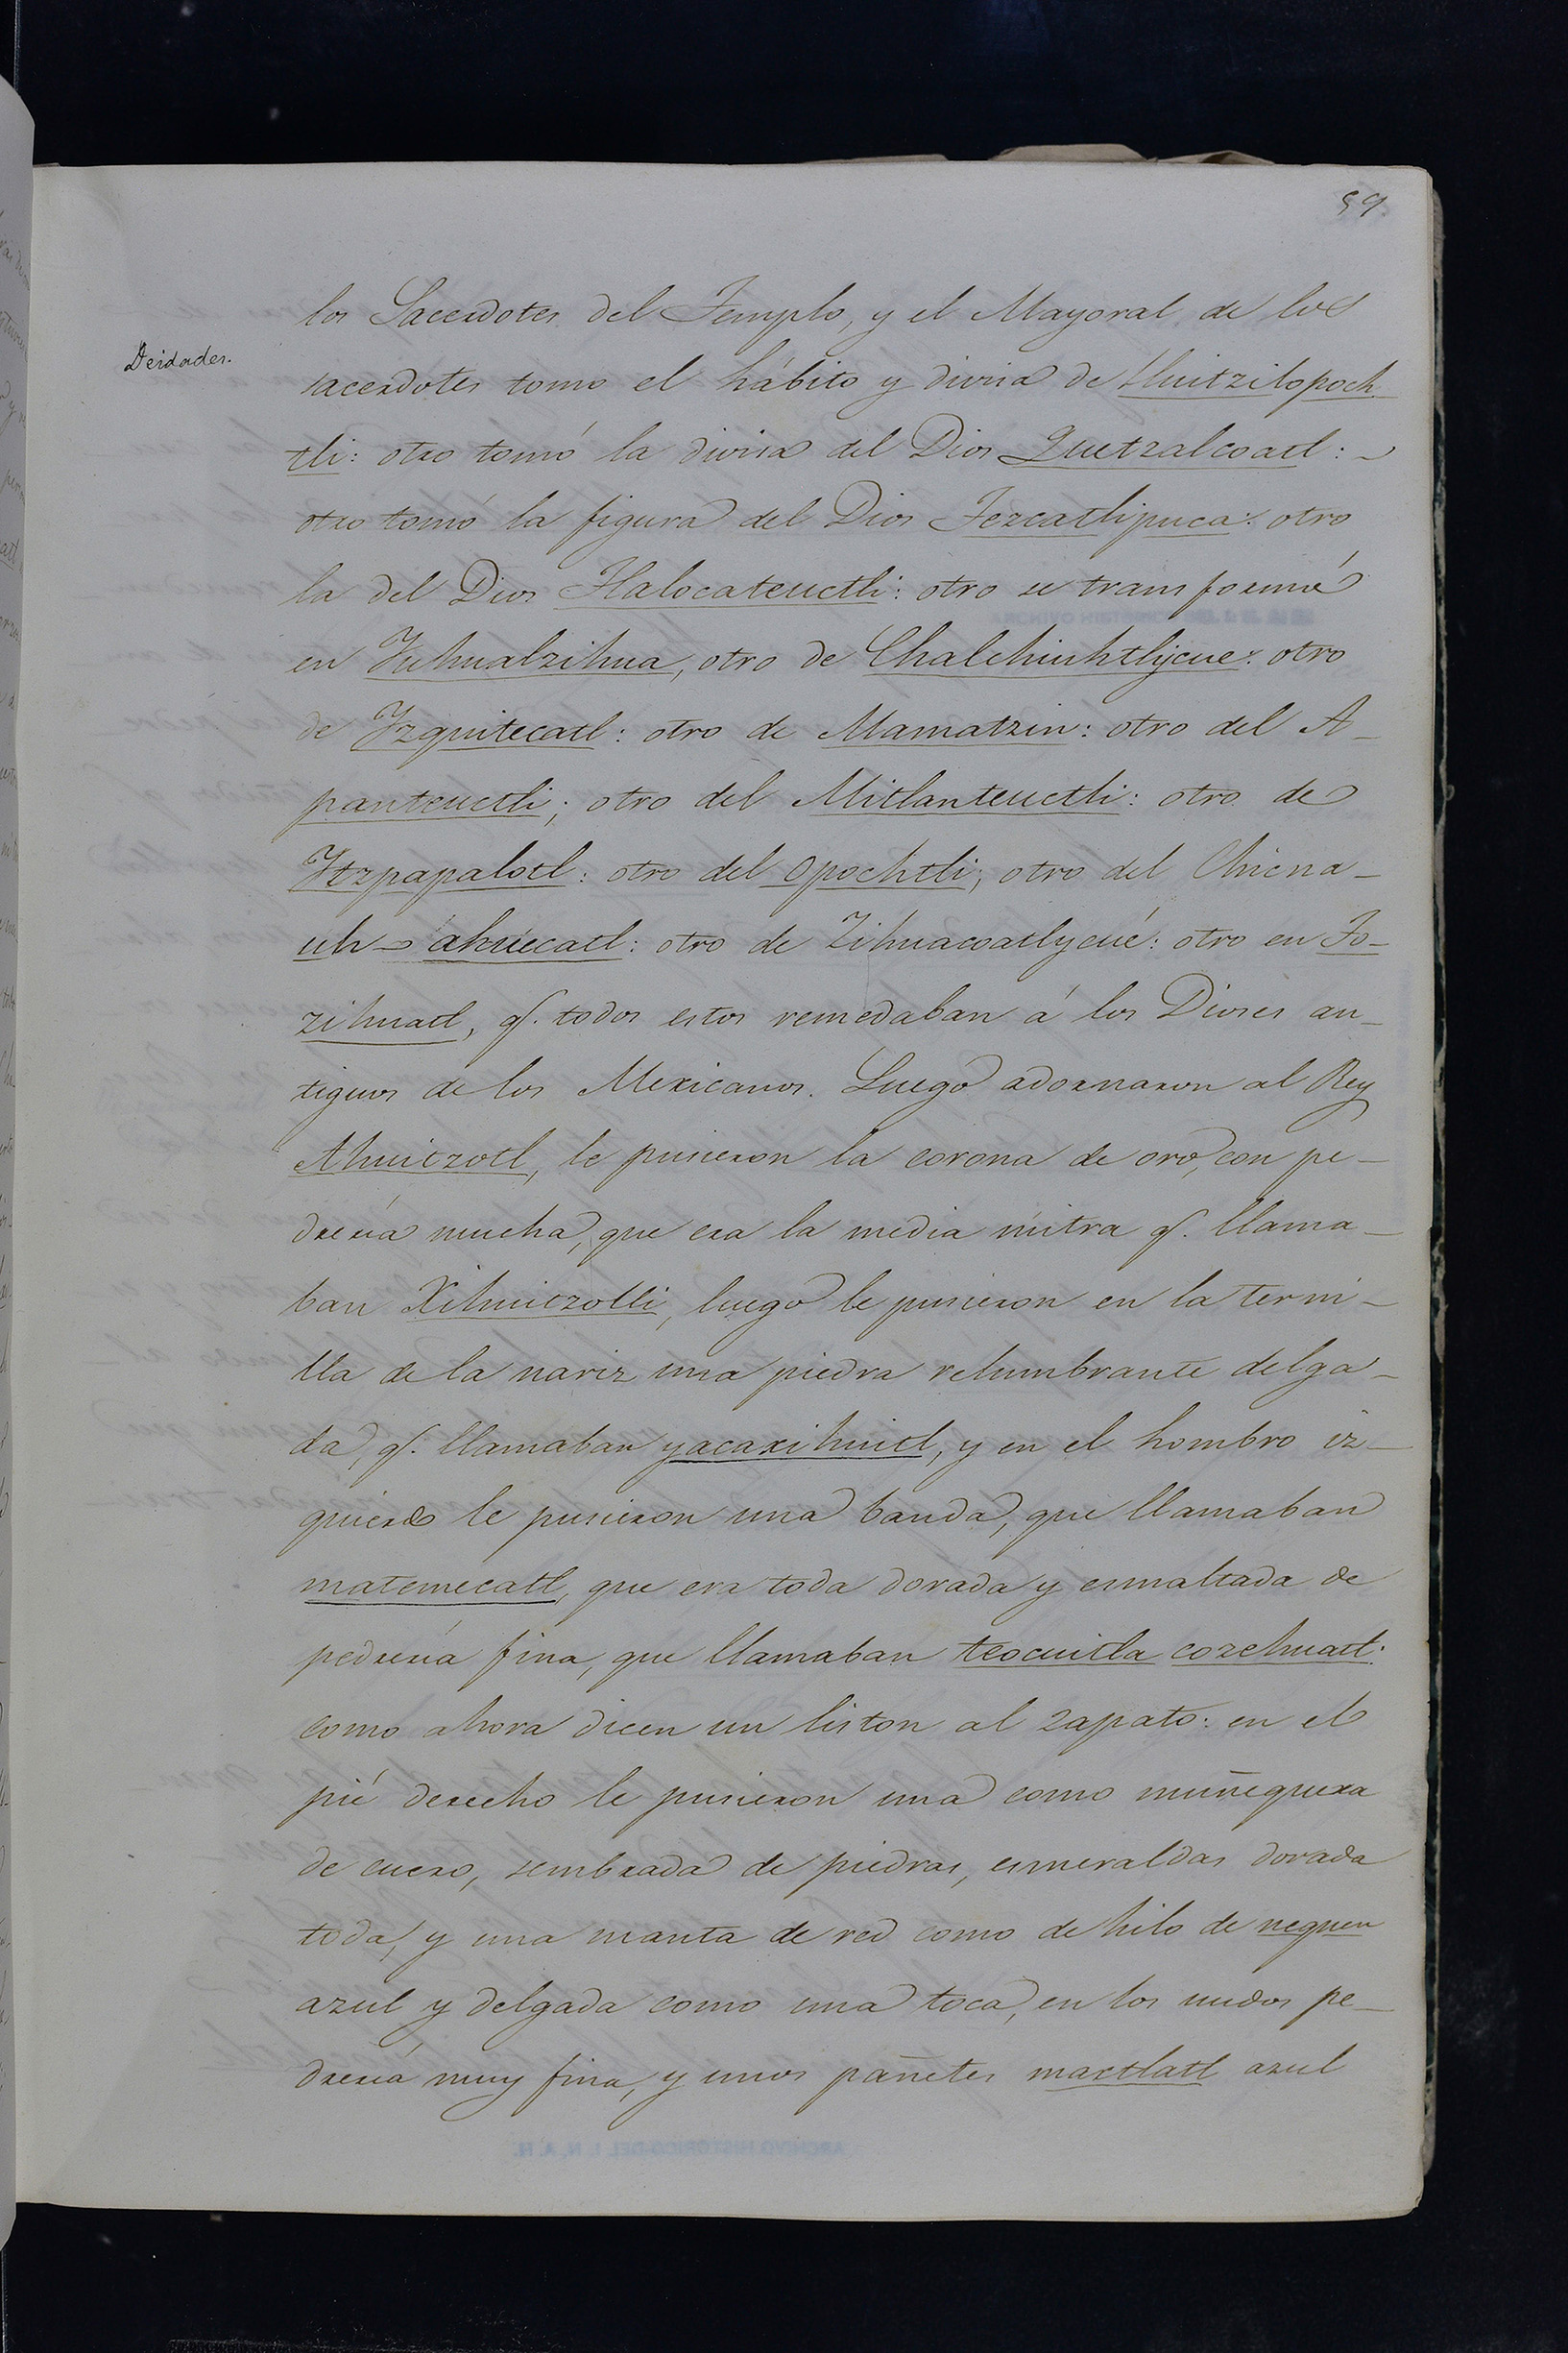 59.
Deidades.
los Sacerdotes del Templo, y el Mayoral de los
sacerdotes tomo el hábito y divisa de Huitzilopoch_
tli: otro tomó la divisa del Dios Quetzalcoatl:
otro tomó la figura del Dios Tezcatlipuca: otro
la del Dios Tlalocateuctli: otro se transformó
en Yuhualzihua, otro de Chalchiuhtlycue: otro
de Yzquitecatl: otro de Mamatzin: otro del A_
panteuctli; otro del Mitlanteuctli: otro de
Ytzpapalotl: otro del Opochtli; otro del Chicna_
uh_ahuecatl: otro de Zihuacoatlycué: otro en To_
zihuatl, q.e todos estos remedaban á los Dioses an_
tiguos de los Mexicanos. Luego adornaron al Rey
Ahuitzotl, le pusieron la corona de oro, con pe_
drería mucha, que era la media mitra q.e llama_
ban Xihuitzolli, luego le pusieron en la terni_
lla de la nariz una piedra relumbrante delga_
da, q.e llamaban yacaxihuitl, y en el hombro iz_
quierdo le pusieron una banda, que llamaban
matemecatl, que era toda dorada y esmaltada de
pedrería fina, que llamaban teocuitla cozehuatl:
como ahora dicen un liston al zapato: en el
pié derecho le pusieron una como muñequera
de cuero, sembrada de piedras, esmeraldas dorada
toda, y una manta de red como de hilo de nequen
azul y delgada como una toca, en los nudos pe_
drería muy fina, y unos pañetes maxtlatl azul
ARCHIVO HISTORICO DEL I. N. A. H.